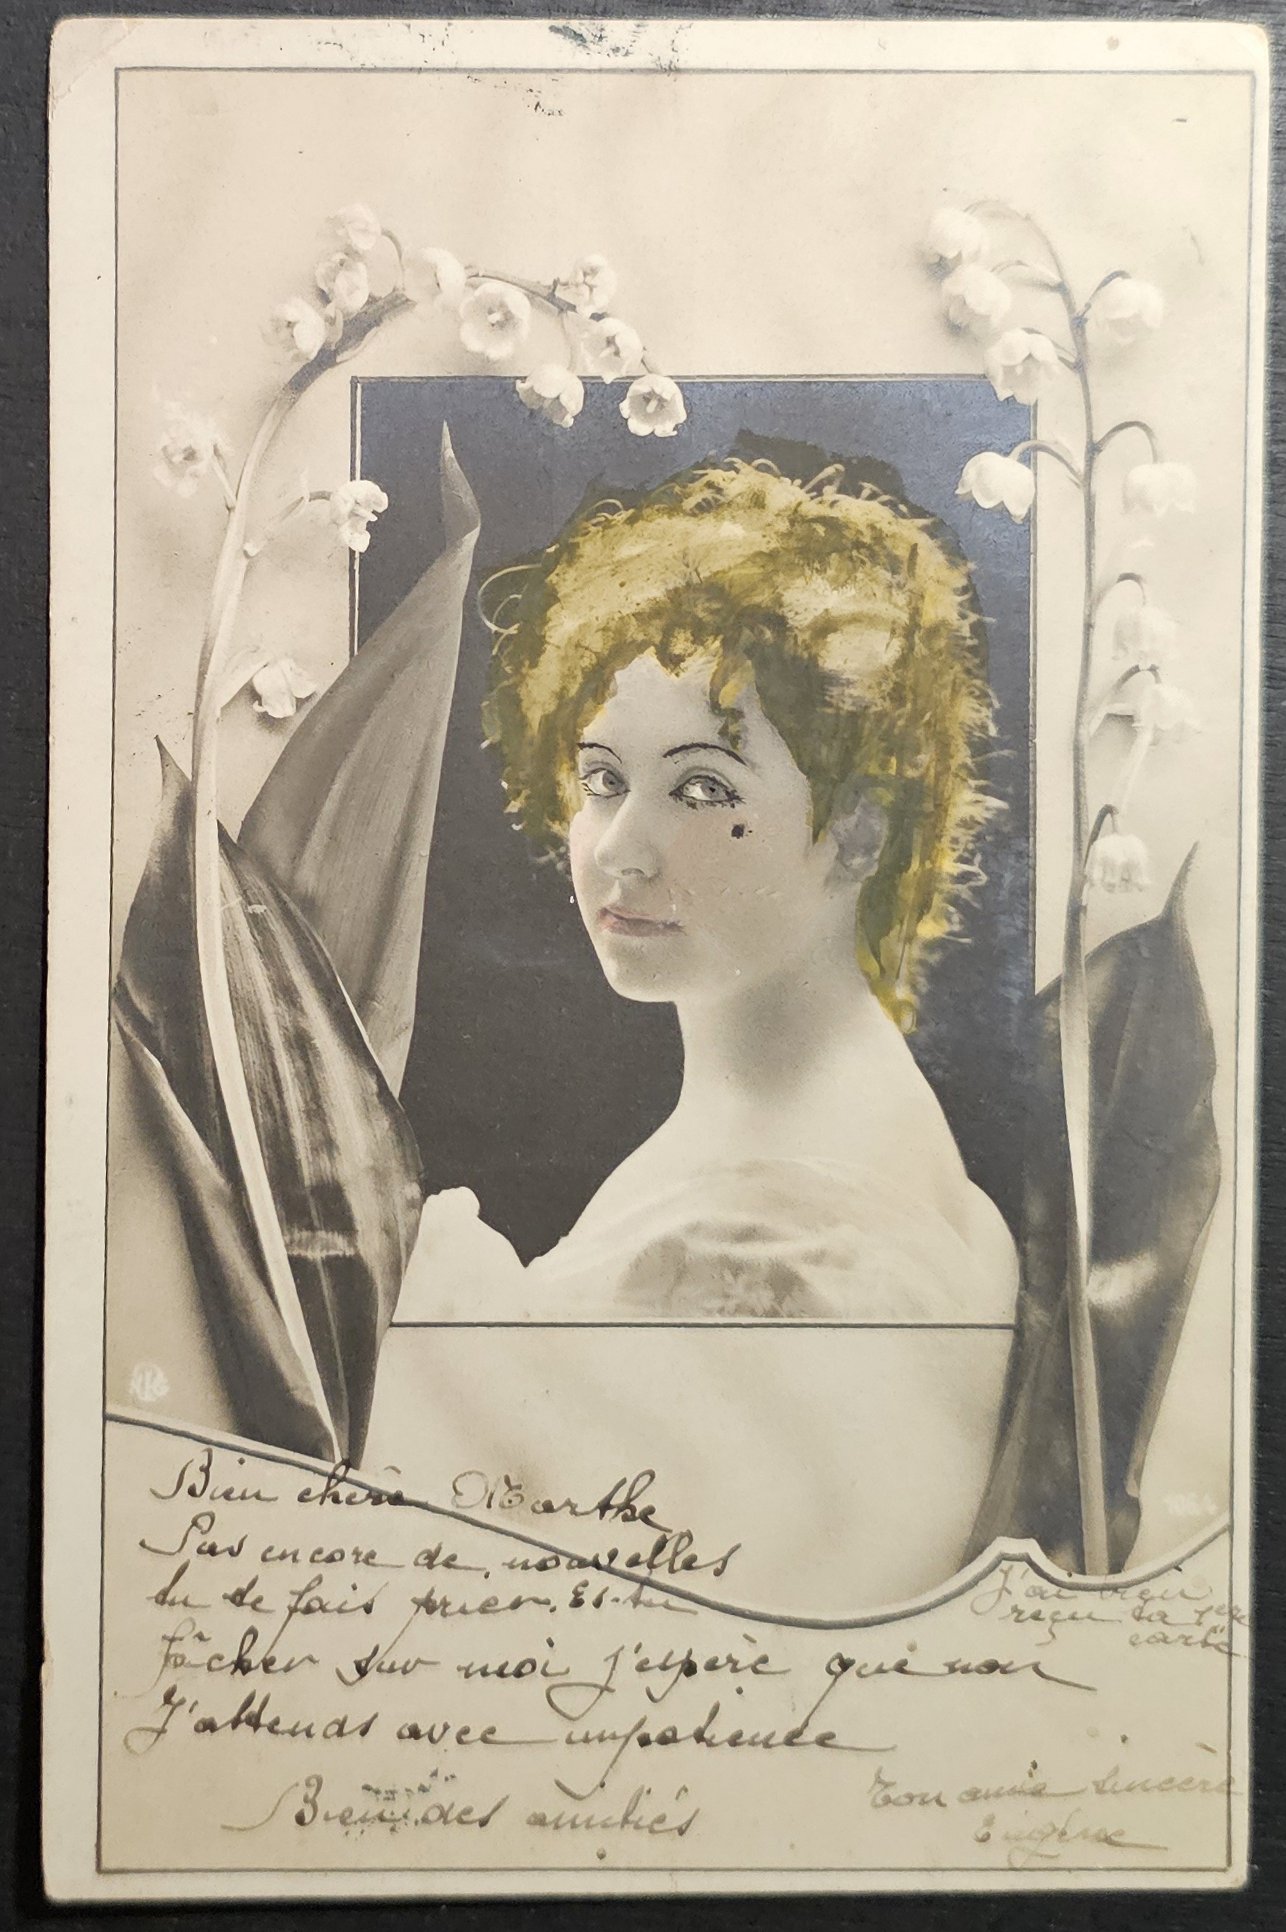 Bien chère Marthe
Pas encore de nouvelles
tu te fais prier. Es-tu
fâcher sur moi j'espère que non
J'attends avec impatience
Bien des amitiés
J'ai bien
reçu ta
carte
Ton amie sincère
Eugénie
NPG